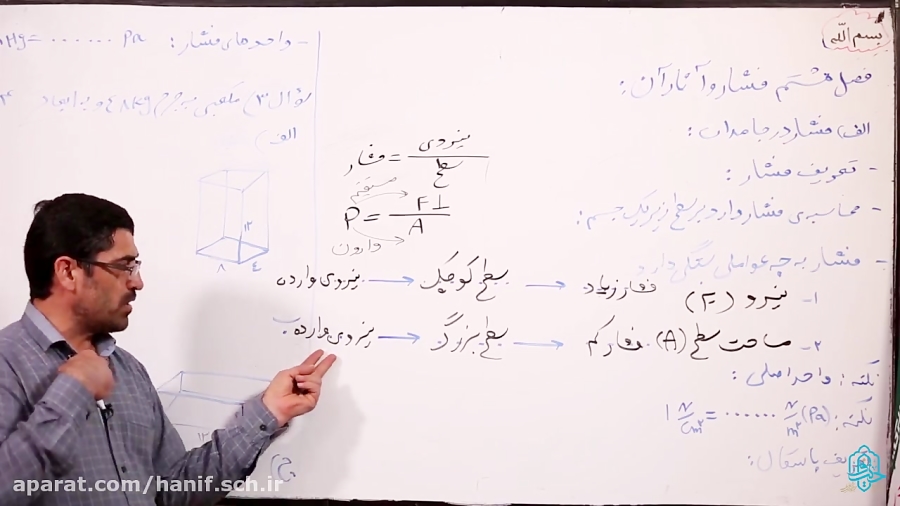 بسم الله
فصل هشتم فشار و آثار آن:
الف) فشار در جامدات:
- تعریف فشار:
- محاسبه‌ی فشار وارد بر سطح زیر یک جسم:
- فشار به چه عواملی بستگی دارد
۱- نیرو (F) فشار زیاد → سطح کوچک → نیروی وارده
۲- مساحت سطح (A). فشار کم → سطح بزرگ → نیروی وارده
نکته: واحد اصلی:
نکته: 1 N/cm² = ...... N/m² (Pa)
پاسکال:
فشار = نیروی / سطح
مستقیم
P = F⊥ / A
وارون
- واحدهای فشار: Hg = ...... Pa
سؤال ۳) مکعبی به جرم ۴۸kg و به ابعاد ۴
الف)
۱۲
۸ ۴
ب
۱۲
ج)
aparat.com/hanif.sch.ir